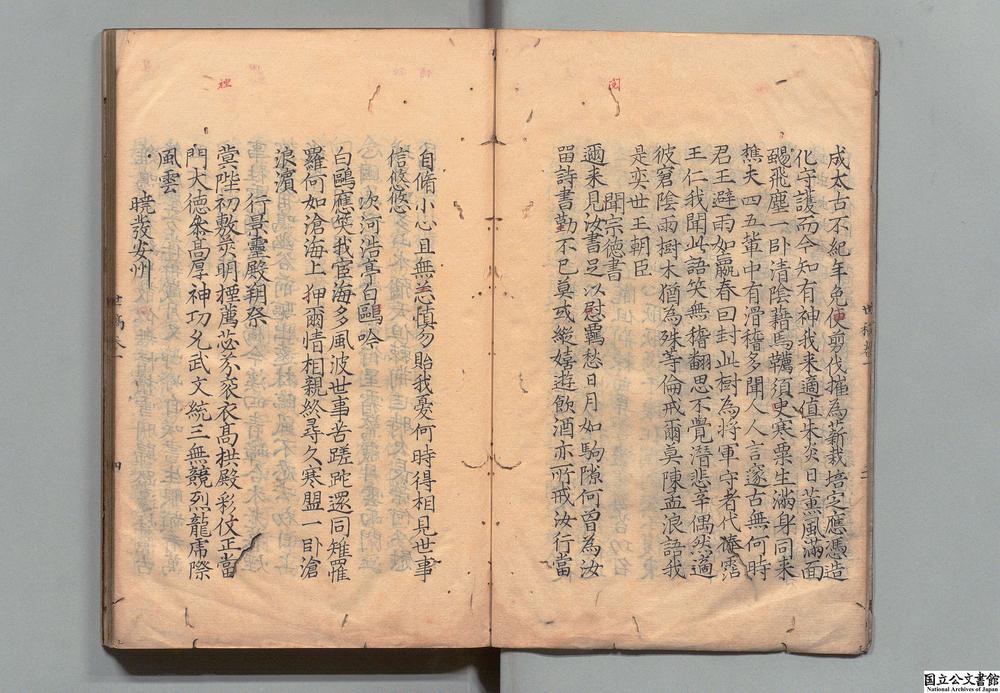 成太古不紀年免使剪伐摧為薪栽培定應憑造
化守護而今知有神我來適值朱炎日薰風滿面
颺飛塵一卧清陰藉馬韉須臾寒粟生滿身同來
樵夫四五輩中有滑稽多聞人人言邃古無何時
君王避雨如嬴春回封此樹為將軍守者代優霑
王仁我聞此語笑無稽翻思不覺潛悲辛偶然適
彼窘陰雨樹木猶為殊等倫戒爾莫陳孟浪語我
是奕世王朝臣
聞宗德書
邇來見汝書足以慰羈愁日月如駒隙何曾為汝
留詩書勤不已莫或縱嬉遊飲酒亦所戒汝行當
自脩小心且無恙慎勿貽我憂何時得相見世事
信悠悠
次河浩亭白鷗吟
白鷗應笑我宦海多風波世事苦蹉跎還同雉罹
羅何如滄海上狎爾情相親終尋久寒盟一卧滄
浪濱
行景靈殿朔祭
蓂陛初敷莢明堙薦苾芬衮衣高拱殿彩仗正當
門大德叅高厚神功允武文統三無競烈龍虎際
風雲
曉發安州
世稿卷一
二
世稿卷一
四
国立公文書館
National Archives of Japan